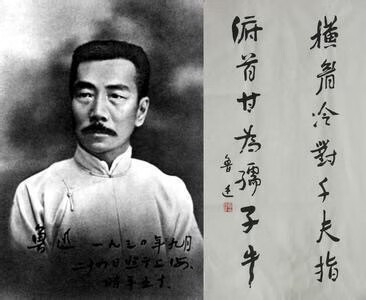 魯迅 一九三〇年九月
二十四日照于上海，
時年五十
橫眉冷對千夫指
俯首甘為孺子牛
魯迅